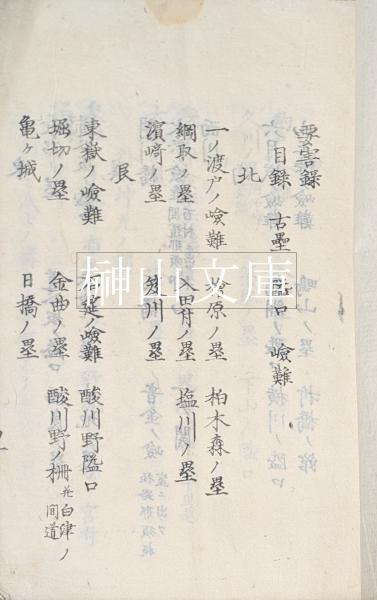 要害録
目録 古塁 隘口 嶮難
北
一ノ渡戸ノ嶮難 桧原ノ塁 柏木森ノ塁
綱取ノ塁 入田付ノ塁 塩川ノ塁
濱﨑ノ塁 笈川ノ塁
艮
東嶽ノ嶮難 ノ嶮難 酸川野隘口
堀切ノ塁 金曲ノ塁 酸川野ノ柵 並白津ノ間道
亀ヶ城 日橋ノ塁
榊山文庫